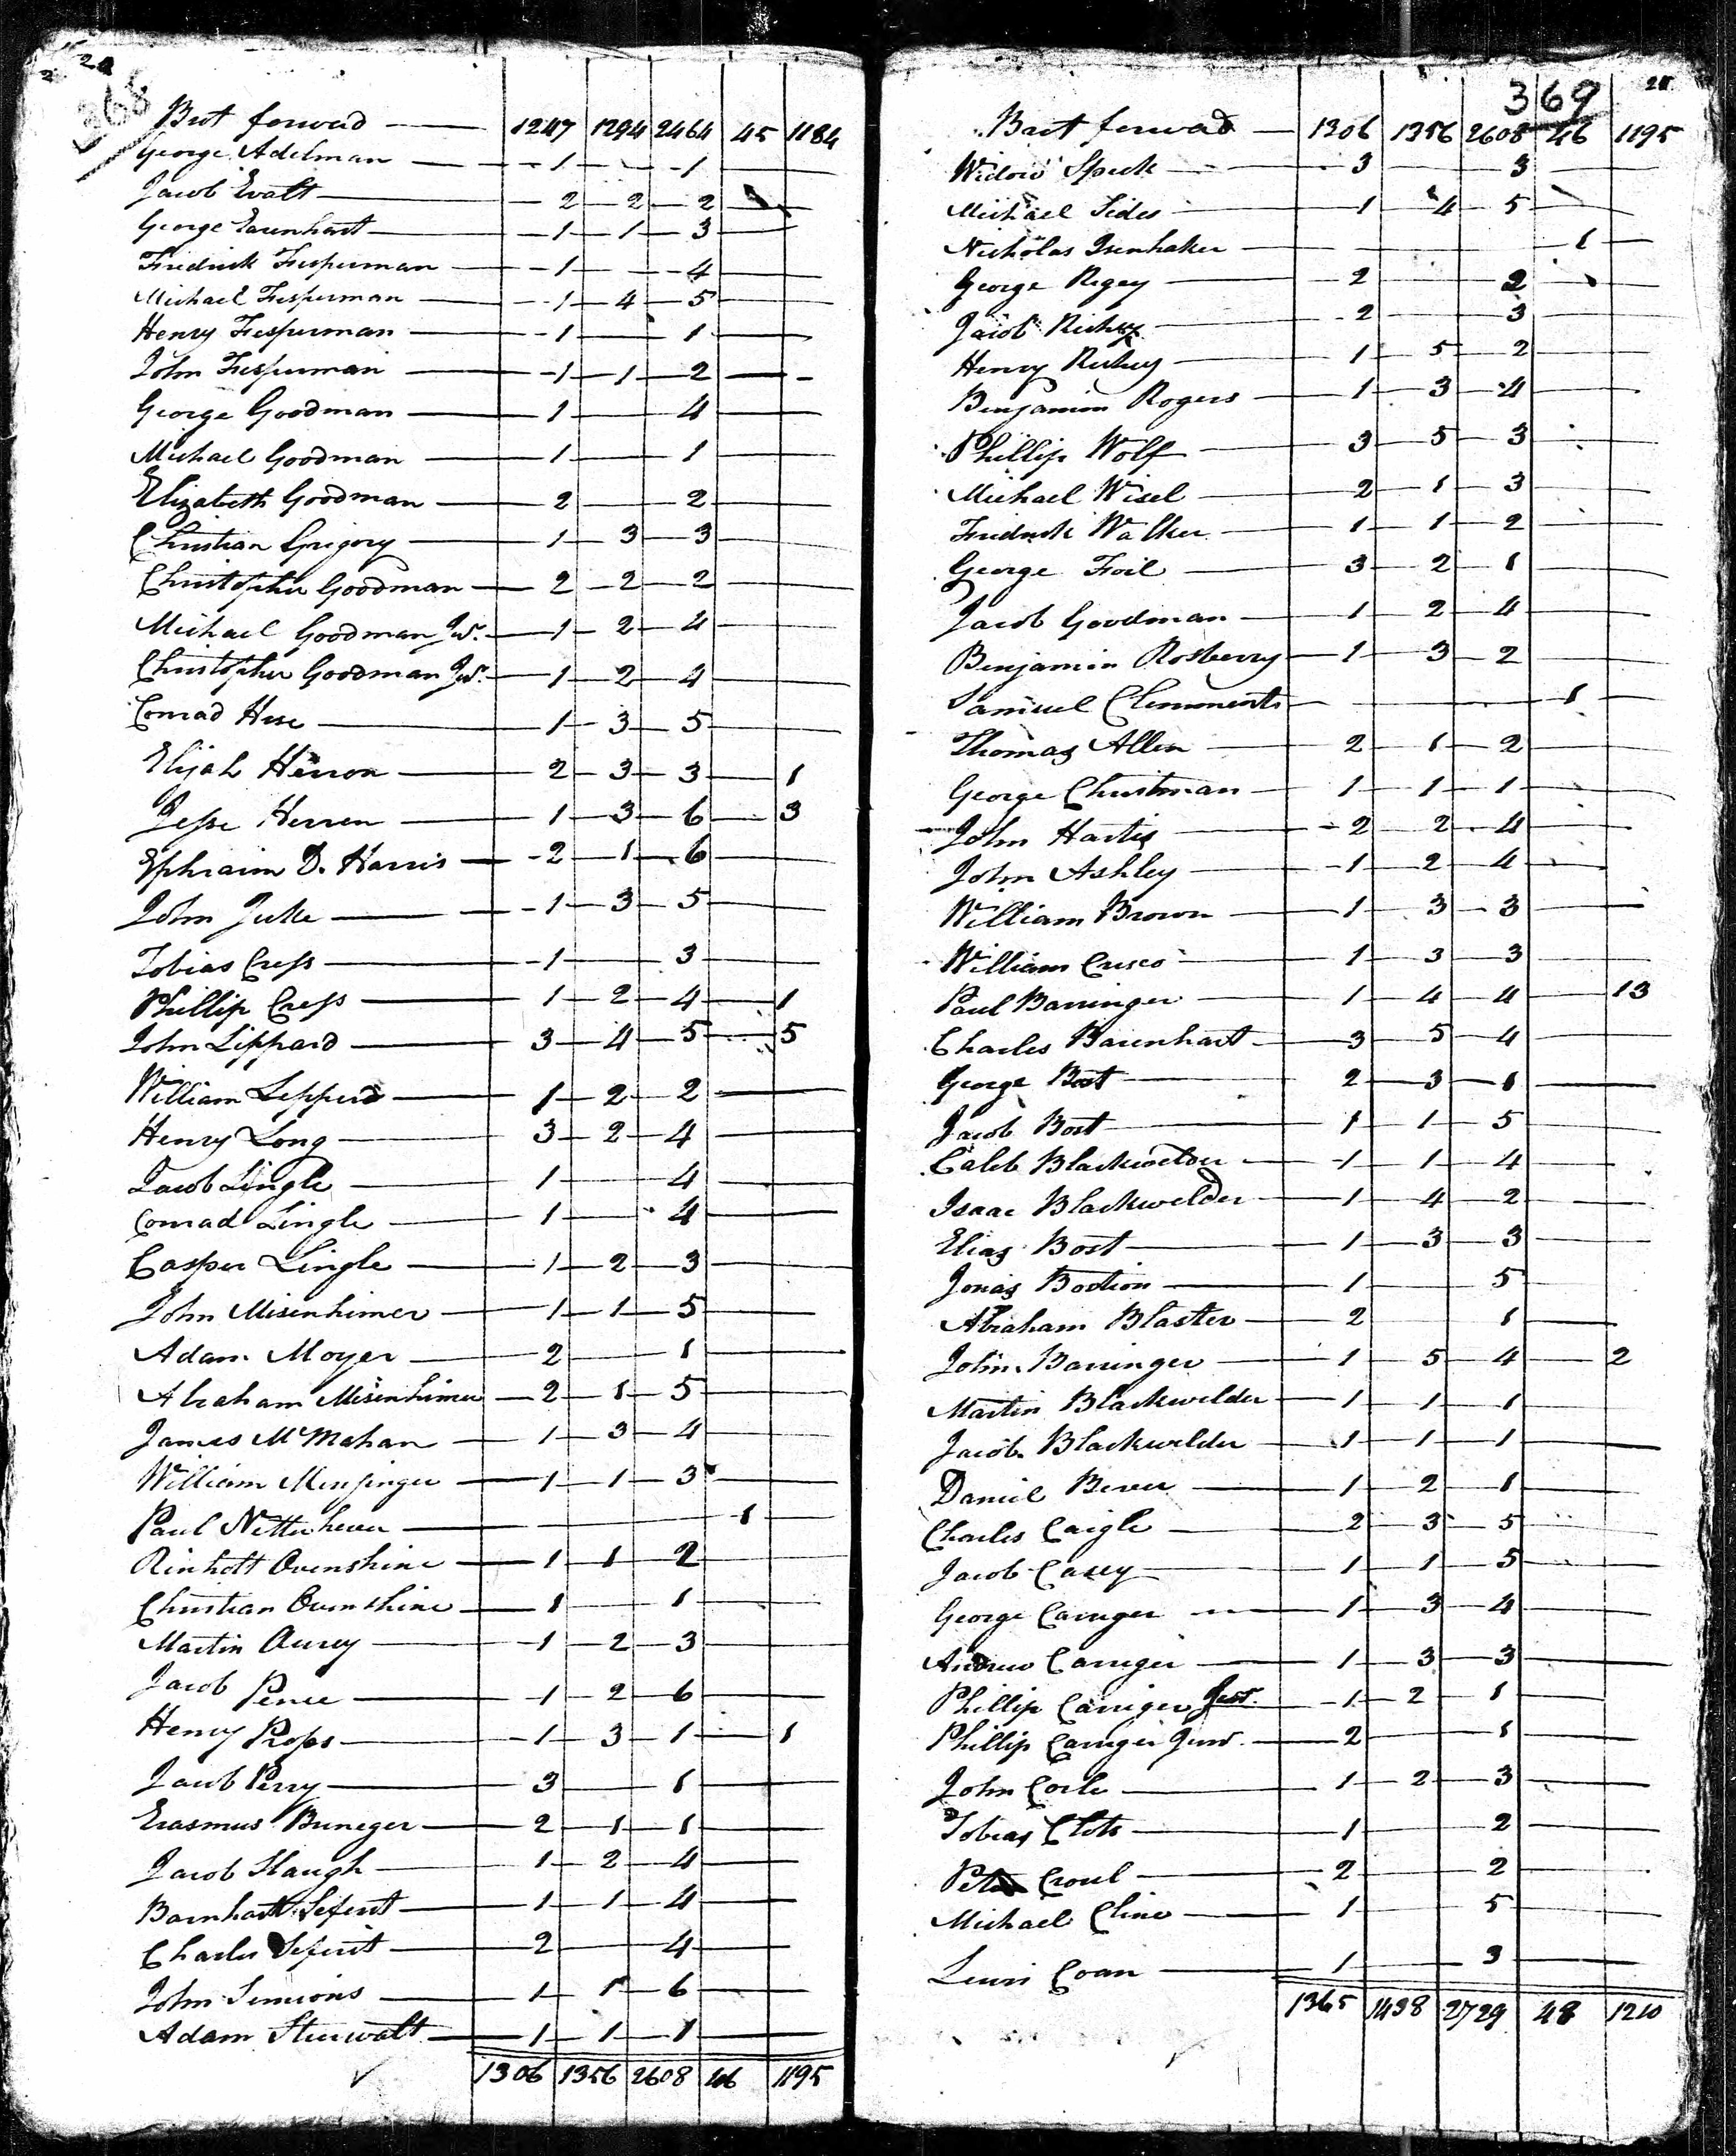 2 20
368
Brot forward 1247 1294 2464 45 1184
George Adelman 1 1
Jacob Evalt 2 2 2
George Earenhart 1 1 3
Fredrick Fesperman 1 4
Michael Fesperman 1 4 5
Henry Fesperman 1 1
John Fesperman 1 1 2
George Goodman 1 4
Michael Goodman 1 1
Elizabeth Goodman 2 2
Christian Grigory 1 3 3
Christopher Goodman 2 2 2
Michael Goodman Jur. 1 2 4
Christopher Goodman Jur. 1 2 4
Conrad Hise 1 3 5
Elijah Herron 2 3 3 1
Jesse Herren 1 3 6 3
Ephraim D. Harris 2 1 6
John Juke 1 3 5
Tobias Cress 1 3
Phillip Cress 1 2 4 1
John Lippard 3 4 5 5
William Lepperd 1 2 2
Henry Long 3 2 4
Jacob Lingle 1 4
Conrad Lingle 1 4
Casper Lingle 1 2 3
John Misenhimer 1 1 5
Adam Moyer 2 1
Abraham Misenhimer 2 1 5
James McMahan 1 3 4
William Mensinger 1 1 3
Paul Netterheven 1
Rinholt Ovenshine 1 1 2
Christian Ovenshine 1 1
Martin Aurey 1 2 3
Jacob Pence 1 2 6
Henry Props 1 3 1 1
Jacob Perry 3 1
Erasmus Buneger 2 1 1
Jacob Slaugh 1 2 4
Barnhart Seferit 1 1 4
Charles Seferit 2 4
John Simions 1 1 6
Adam Stuwalt 1 1 1
1306 1356 2608 46 1195
369 21
Brot forward 1306 1356 2608 46 1195
Widow Speck 3 3
Michael Sides 1 4 5
Nicholas Isenhaker 1
George Rigey 2 2
Jacob Richey 2 3
Henry Richey 1 5 2
Benjamin Rogers 1 3 4
Phillip Wolf 3 5 3
Michael Wisel 2 1 3
Fredrick Walker 1 1 2
George Foil 3 2 1
Jacob Goodman 1 2 4
Benjamin Rosberry 1 3 2
Samuel Clemments 1
Thomas Allen 2 1 2
George Christman 1 1 1
John Hartis 2 2 4
John Ashley 1 2 4
William Brown 1 3 3
William Crisco 1 3 3
Paul Barringer 1 4 4 13
Charles Barenhart 3 5 4
George Bost 2 3 1
Jacob Bost 1 1 5
Caleb Blackwelder 1 1 4
Isaac Blackwelder 1 4 2
Elias Bost 1 3 3
Jonas Bostion 1 5
Abraham Blaster 2 1
John Barringer 1 5 4 2
Martin Blackwelder 1 1 1
Jacob Blackwelder 1 1 1
Daniel Bever 1 2 1
Charles Caigle 2 3 5
Jacob Casey 1 1 5
George Carriger 1 3 4
Andrew Carriger 1 3 3
Phillip Carriger Jur. 1 2 1
Phillip Carriger Junr. 2 1
John Corle 1 2 3
Tobias Clots 1 2
Peter Croul 2 2
Michael Cline 1 5
Lewis Coan 1 3
1365 1438 2729 48 1210